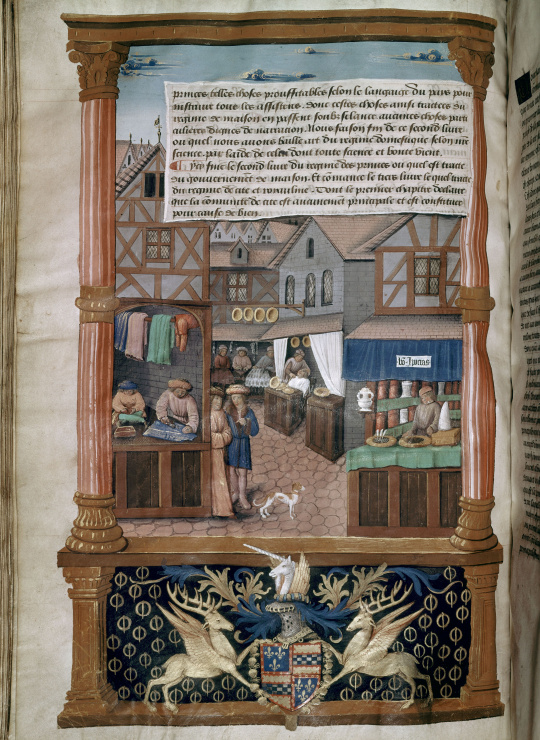 princes telles choses prouffitables selon le langaige du pays pour
instruire tous les assistens. Donc cestes choses ainsi traittes du
regime de maison en passent soubz silance aucunes choses part
iculieres dignes de narration. Nous faison fin de ce second livre
au quel nous avons baille art du regime domestique selon nre
science par laide de celui dont toute science et bonte vient.
Cy fine le second livre du regime des princes ou quel est traicte
du gouvernement de maison. Et comence le tiers livre le quel traite
du regime de cite et royaulme. Dont le premier chapitre declaire
que la comunite de cite est aucunement principale et est constituee
pour cause de bien.
bō ypocras